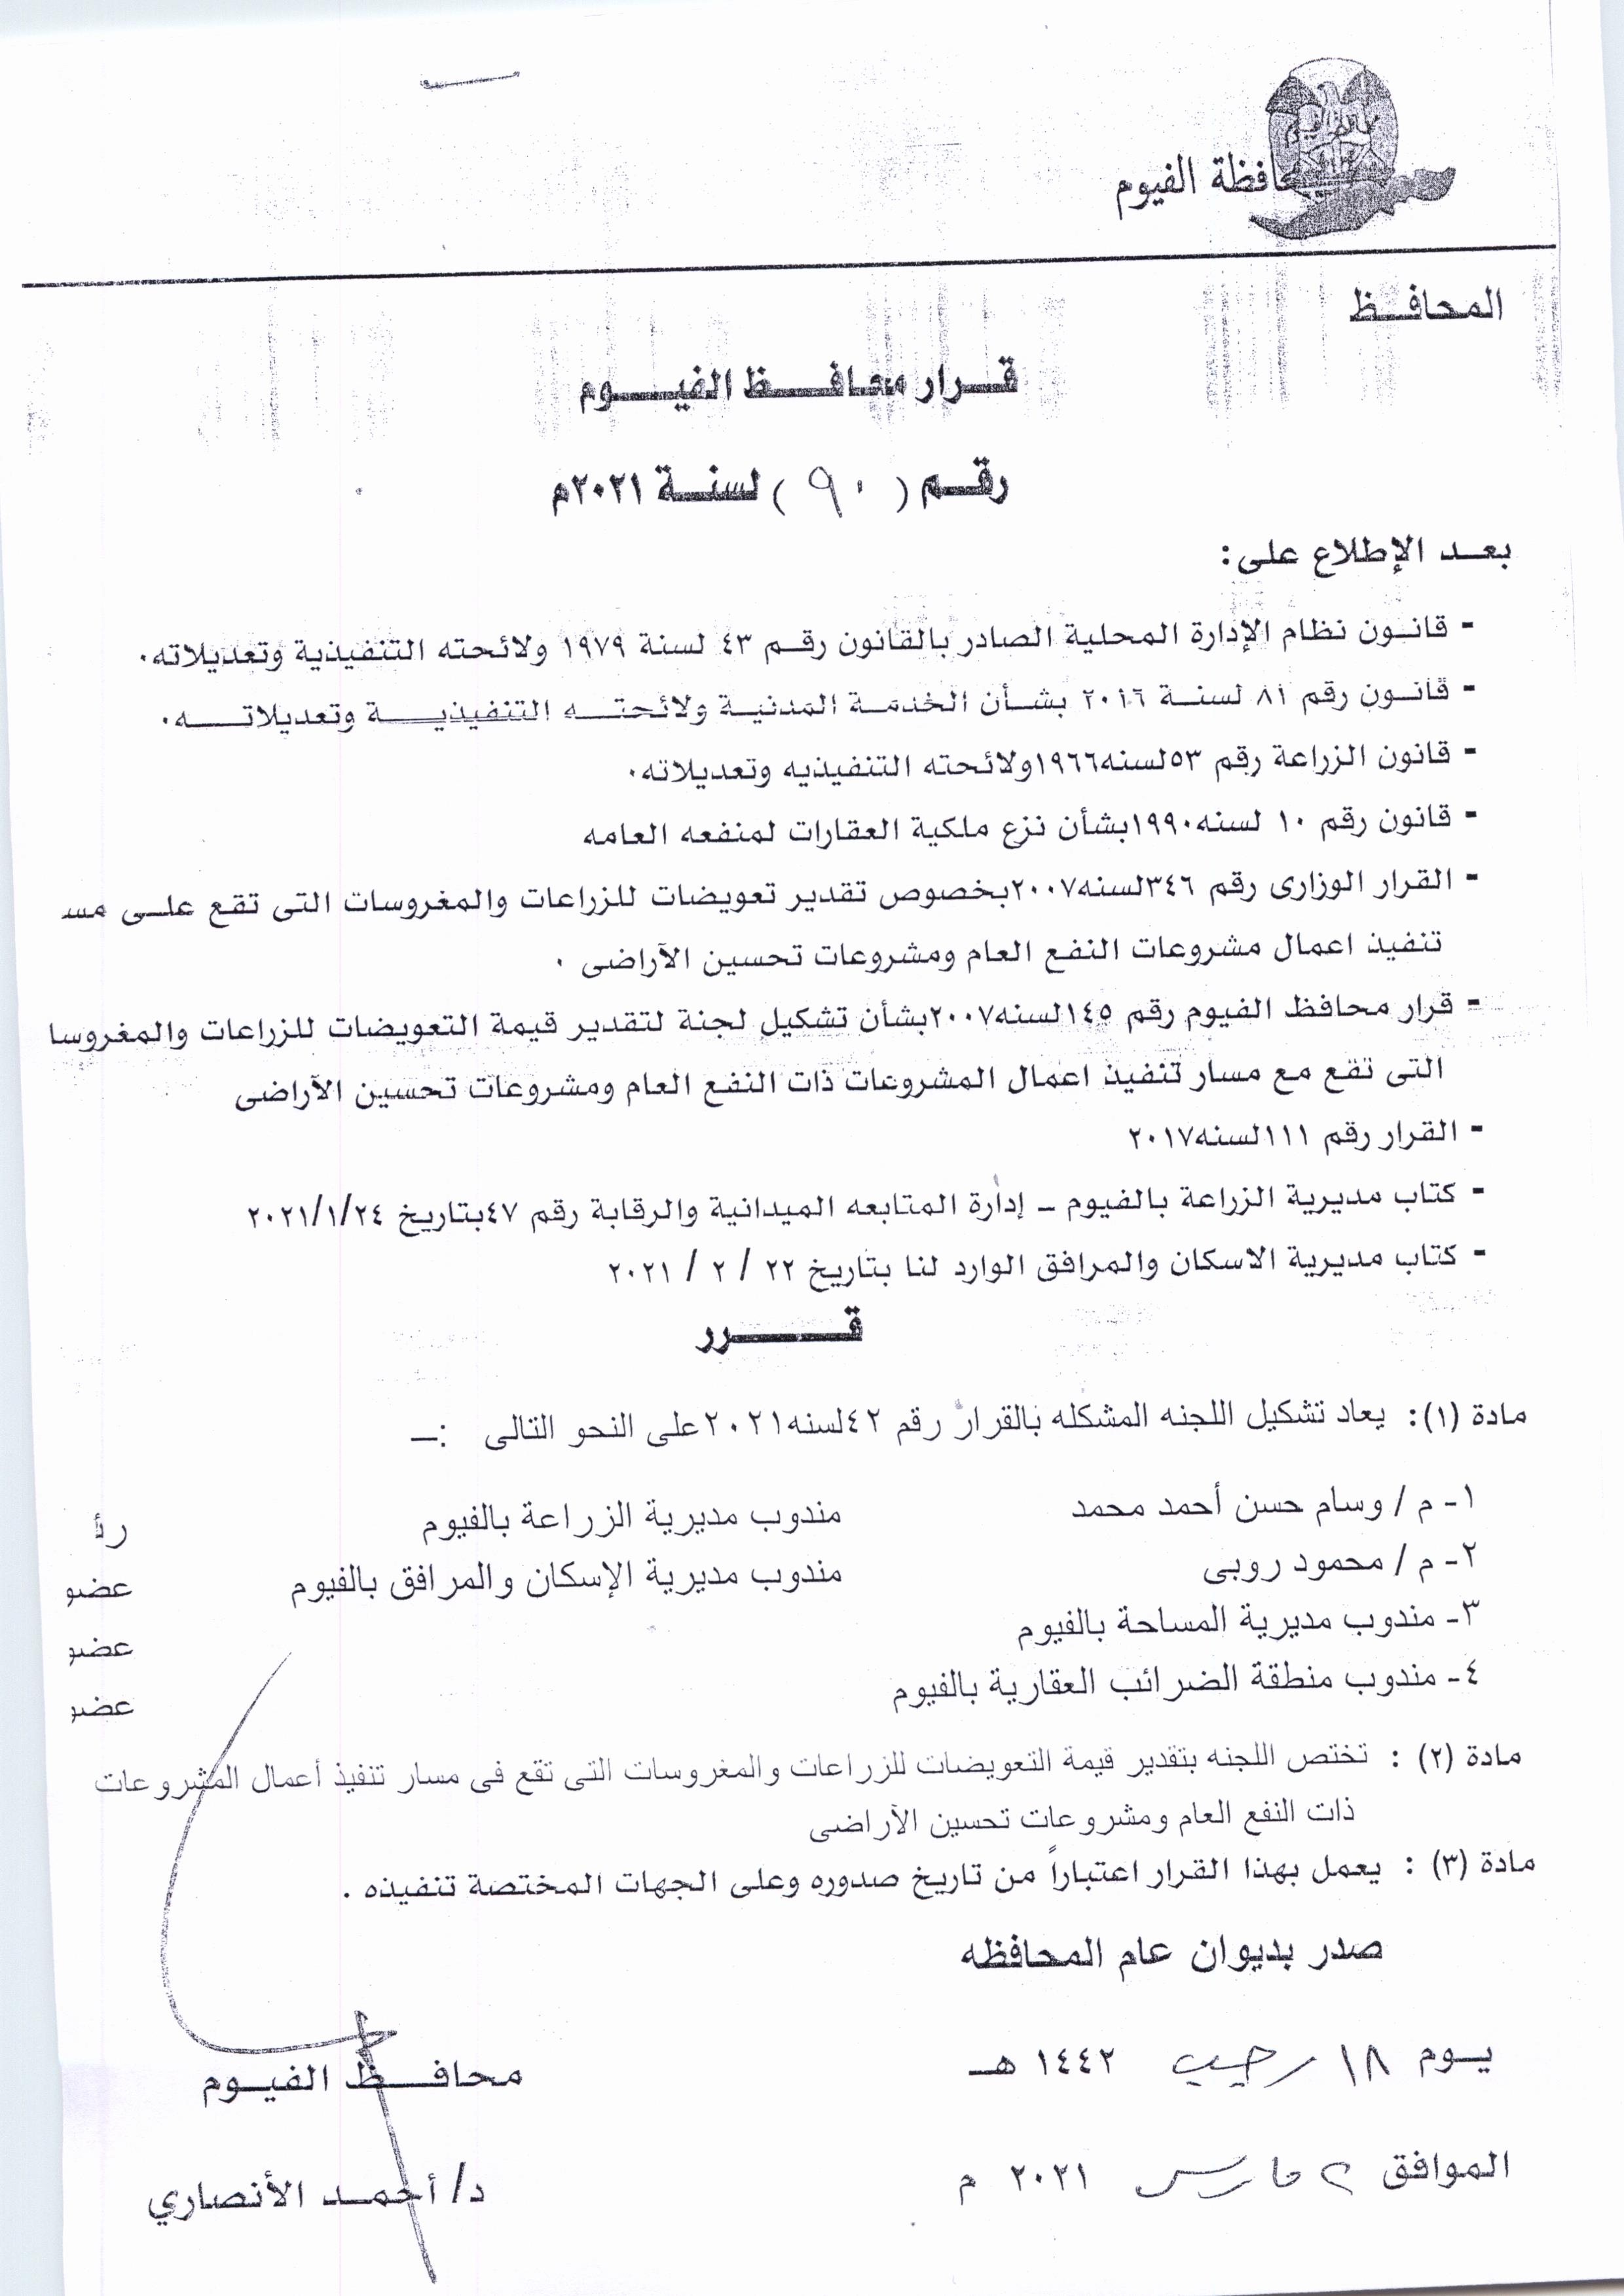 محافظة الفيوم
المحافـــظ
قـــرار محافـــــظ الفيـــــوم
رقـــم ( ٩٠ ) لسنـــة ٢٠٢١م
بعـــد الإطلاع على:
- قانــون نظام الإدارة المحلية الصادر بالقانون رقــم ٤٣ لسنة ١٩٧٩ ولائحته التنفيذية وتعديلاته.
- قانــون رقم ٨١ لسنــة ٢٠١٦ بشــأن الخدمــة المدنيــة ولائحتـــه التنفيذيـــة وتعديلاتـــه.
- قانون الزراعة رقم ٥٣لسنه١٩٦٦ولائحته التنفيذيه وتعديلاته.
- قانون رقم ١٠ لسنه١٩٩٠بشأن نزع ملكية العقارات لمنفعه العامه
- القرار الوزارى رقم ٣٤٦لسنه٢٠٠٧بخصوص تقدير تعويضات للزراعات والمغروسات التى تقع علــى مسـ
تنفيذ اعمال مشروعات النفع العام ومشروعات تحسين الآراضى .
- قرار محافظ الفيوم رقم ١٤٥لسنه٢٠٠٧بشأن تشكيل لجنة لتقدير قيمة التعويضات للزراعات والمغروسا
التى تقع مع مسار تنفيذ اعمال المشروعات ذات النفع العام ومشروعات تحسين الآراضى
- القرار رقم ١١١لسنه٢٠١٧
- كتاب مديرية الزراعة بالفيوم ـ إدارة المتابعه الميدانية والرقابة رقم ٤٧بتاريخ ٢٠٢١/١/٢٤
- كتاب مديرية الاسكان والمرافق الوارد لنا بتاريخ ٢٢ / ٢ / ٢٠٢١
قـــــــرر
مادة (١): يعاد تشكيل اللجنه المشكله بالقرار رقم ٤٢لسنه٢٠٢١على النحو التالى :ــ
١- م / وسام حسن أحمد محمد مندوب مديرية الزراعة بالفيوم رئـ
٢- م / محمود روبى مندوب مديرية الإسكان والمرافق بالفيوم عضو
٣- مندوب مديرية المساحة بالفيوم عضو
٤- مندوب منطقة الضرائب العقارية بالفيوم عضو
مادة (٢) : تختص اللجنه بتقدير قيمة التعويضات للزراعات والمغروسات التى تقع فى مسار تنفيذ أعمال المشروعات
ذات النفع العام ومشروعات تحسين الآراضى
مادة (٣) : يعمل بهذا القرار اعتباراً من تاريخ صدوره وعلى الجهات المختصة تنفيذه .
صدر بديوان عام المحافظه
يــوم ١٨ رجب ١٤٤٢ هــ
الموافق ٢ مارس ٢٠٢١ م
محافـــــظ الفيــوم
د/ أحمــد الأنصاري